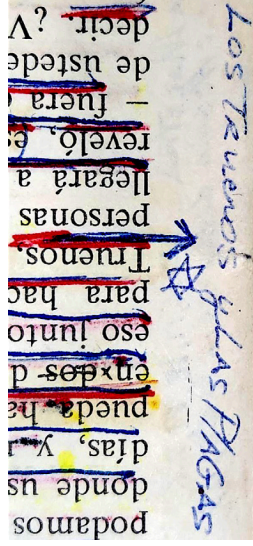 podamos
donde us
días, y
pueda ha
en dos d
eso junto
para hac
Truenos.
personas
llegará a
reveló, es
– fuera
de ustede
decir ¿V
LOS TRUENOS y LAS PlAGAS